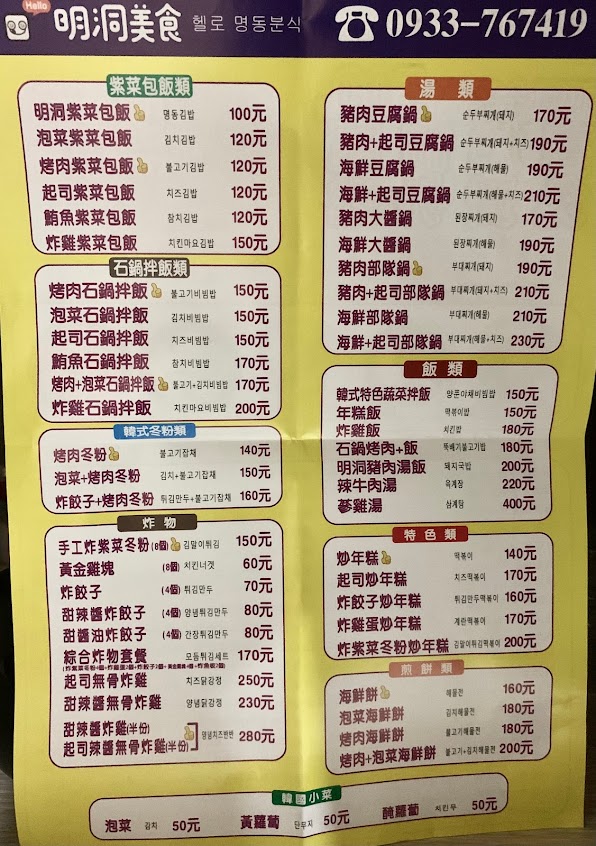 Hello
明洞美食 헬로 명동분식 ☎0933-767419
紫菜包飯類
明洞紫菜包飯 명동김밥 100元
泡菜紫菜包飯 김치김밥 120元
烤肉紫菜包飯 불고기김밥 120元
起司紫菜包飯 치즈김밥 120元
鮪魚紫菜包飯 참치김밥 120元
炸雞紫菜包飯 치킨마요김밥 150元
石鍋拌飯類
烤肉石鍋拌飯 불고기비빔밥 150元
泡菜石鍋拌飯 김치비빔밥 150元
起司石鍋拌飯 치즈비빔밥 150元
鮪魚石鍋拌飯 참치비빔밥 170元
烤肉+泡菜石鍋拌飯 불고기+김치비빔밥 170元
炸雞石鍋拌飯 치킨마요비빔밥 200元
韓式冬粉類
烤肉冬粉 불고기잡채 140元
泡菜+烤肉冬粉 김치+불고기잡채 150元
炸餃子+烤肉冬粉 튀김만두+불고기잡채 160元
炸物
手工炸紫菜冬粉(6個) 김말이튀김 150元
黃金雞塊 (8個) 치킨너겟 60元
炸餃子 (4個) 튀김만두 70元
甜辣醬炸餃子 (4個) 양념튀김만두 80元
甜醬油炸餃子 (4個) 간장튀김만두 80元
綜合炸物套餐 모듬튀김세트 170元
起司無骨炸雞 치즈닭강정 250元
甜辣醬無骨炸雞 양념닭강정 230元
甜辣醬炸雞(半份)
起司辣醬無骨炸雞(半份) 양념치즈반반 280元
湯類
豬肉豆腐鍋 순두부찌개(돼지) 170元
豬肉+起司豆腐鍋 순두부찌개(돼지+치즈) 190元
海鮮豆腐鍋 순두부찌개(해물) 190元
海鮮+起司豆腐鍋 순두부찌개(해물+치즈) 210元
豬肉大醬鍋 된장찌개(돼지) 170元
海鮮大醬鍋 된장찌개(해물) 190元
豬肉部隊鍋 부대찌개(돼지) 190元
豬肉+起司部隊鍋 부대찌개(돼지+치즈) 210元
海鮮部隊鍋 부대찌개(해물) 210元
海鮮+起司部隊鍋 부대찌개(해물+치즈) 230元
飯類
韓式特色蔬菜拌飯 양푼야채비빔밥 150元
年糕飯 떡볶이밥 150元
炸雞飯 치킨밥 180元
石鍋烤肉+飯 뚝배기불고기밥 180元
明洞豬肉湯飯 돼지국밥 200元
辣牛肉湯 육계장 220元
蔘雞湯 삼계탕 400元
特色類
炒年糕 떡볶이 140元
起司炒年糕 치즈떡볶이 170元
炸餃子炒年糕 튀김만두떡볶이 160元
炸雞蛋炒年糕 계란떡볶이 170元
炸紫菜冬粉炒年糕 김말이튀김떡볶이 200元
煎餅類
海鮮餅 해물전 160元
泡菜海鮮餅 김치해물전 180元
烤肉海鮮餅 불고기해물전 180元
烤肉+泡菜海鮮餅 불고기+김치해물전 200元
韓國小菜
泡菜 김치 50元 黃蘿蔔 단무지 50元 醃蘿蔔 치킨무 50元